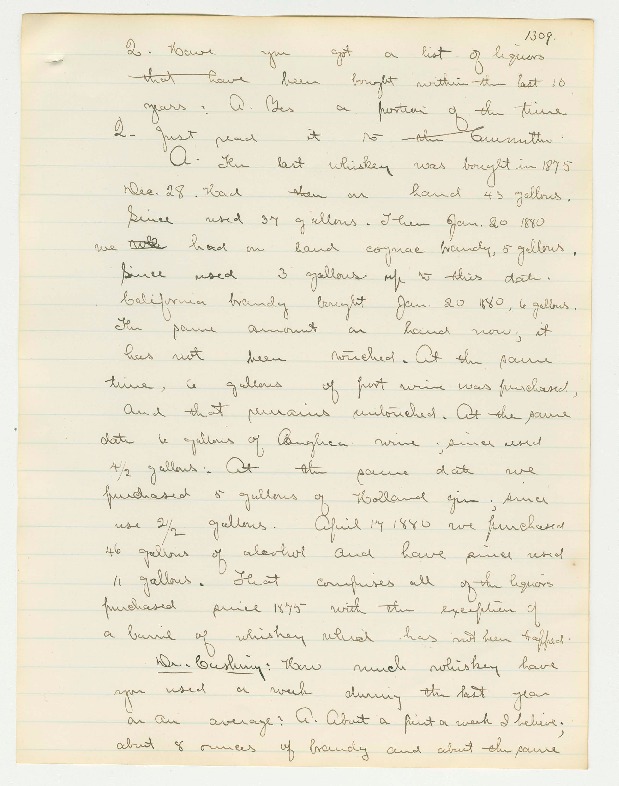 1309.
Q. Have you got a list of liquors
that have been bought within the last 10
years? A. Yes a portion of the time
Q. Just read it to the Committee.
A. The last whiskey was bought in 1875
Dec. 28. Had on hand 43 gallons.
Since used 37 gallons. Then Jan. 20 1880
we had on hand cognac brandy, 5 gallons.
Since used 3 gallons up to this date.
California brandy bought Jan 20 1880, 6 gallons.
The same amount on hand now, it
has not been touched. At the same
time, 6 gallons of port wine was purchased,
and that remains untouched. At the same
date 6 gallons of Angelica wine; since used
4 1/2 gallons. At the same date we
purchased 5 gallons of Holland gin; since
use 2 1/2 gallons. April 17 1880 we purchased
46 gallons of alcohol and have since used
11 gallons. That comprises all of the liquors
purchased since 1875 with the exception of
a barrel of whiskey which has not been tapped.
Dr. Cushing: How much whiskey have
you used a week during the last year
on an average? A. About a pint a week I believe;
about 8 ounces of brandy and about the same